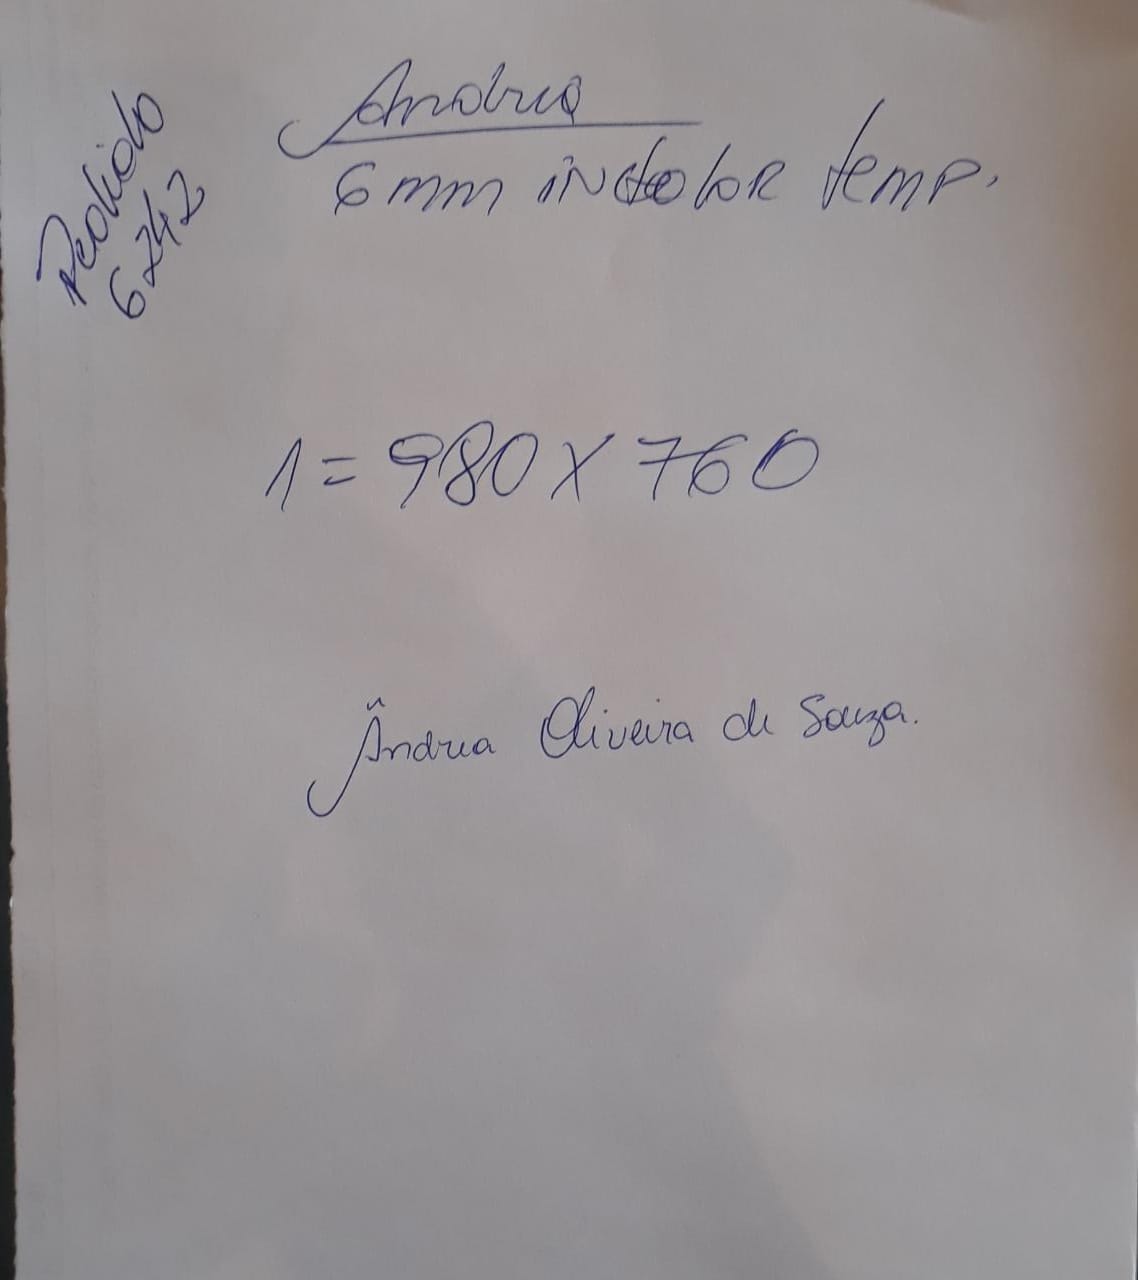 Pedido
6242
Andrea
6mm incolor temp.
1 = 980 X 760
Ândrea Oliveira de Souza.